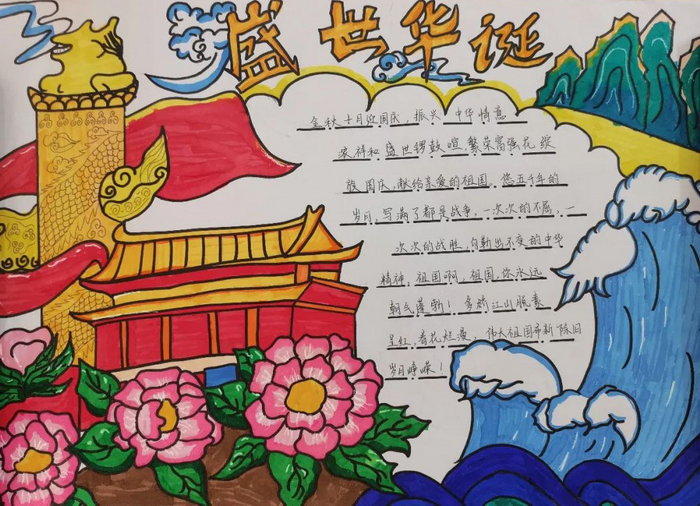 盛世华诞
金秋十月迎国庆,振兴中华情意
浓祥和盛世锣鼓喧繁荣富强花缤
旗国庆,献给亲爱的祖国,您五千年的
岁月,写满了都是战争,一次次的不屈,一
次次的战胜,勾勒出不变的中华
精神,祖国啊,祖国,你永远
朝气蓬勃!多娇江山脈素
呈红,春花烂漫,伟大祖国布新陈旧
岁月峥嵘!